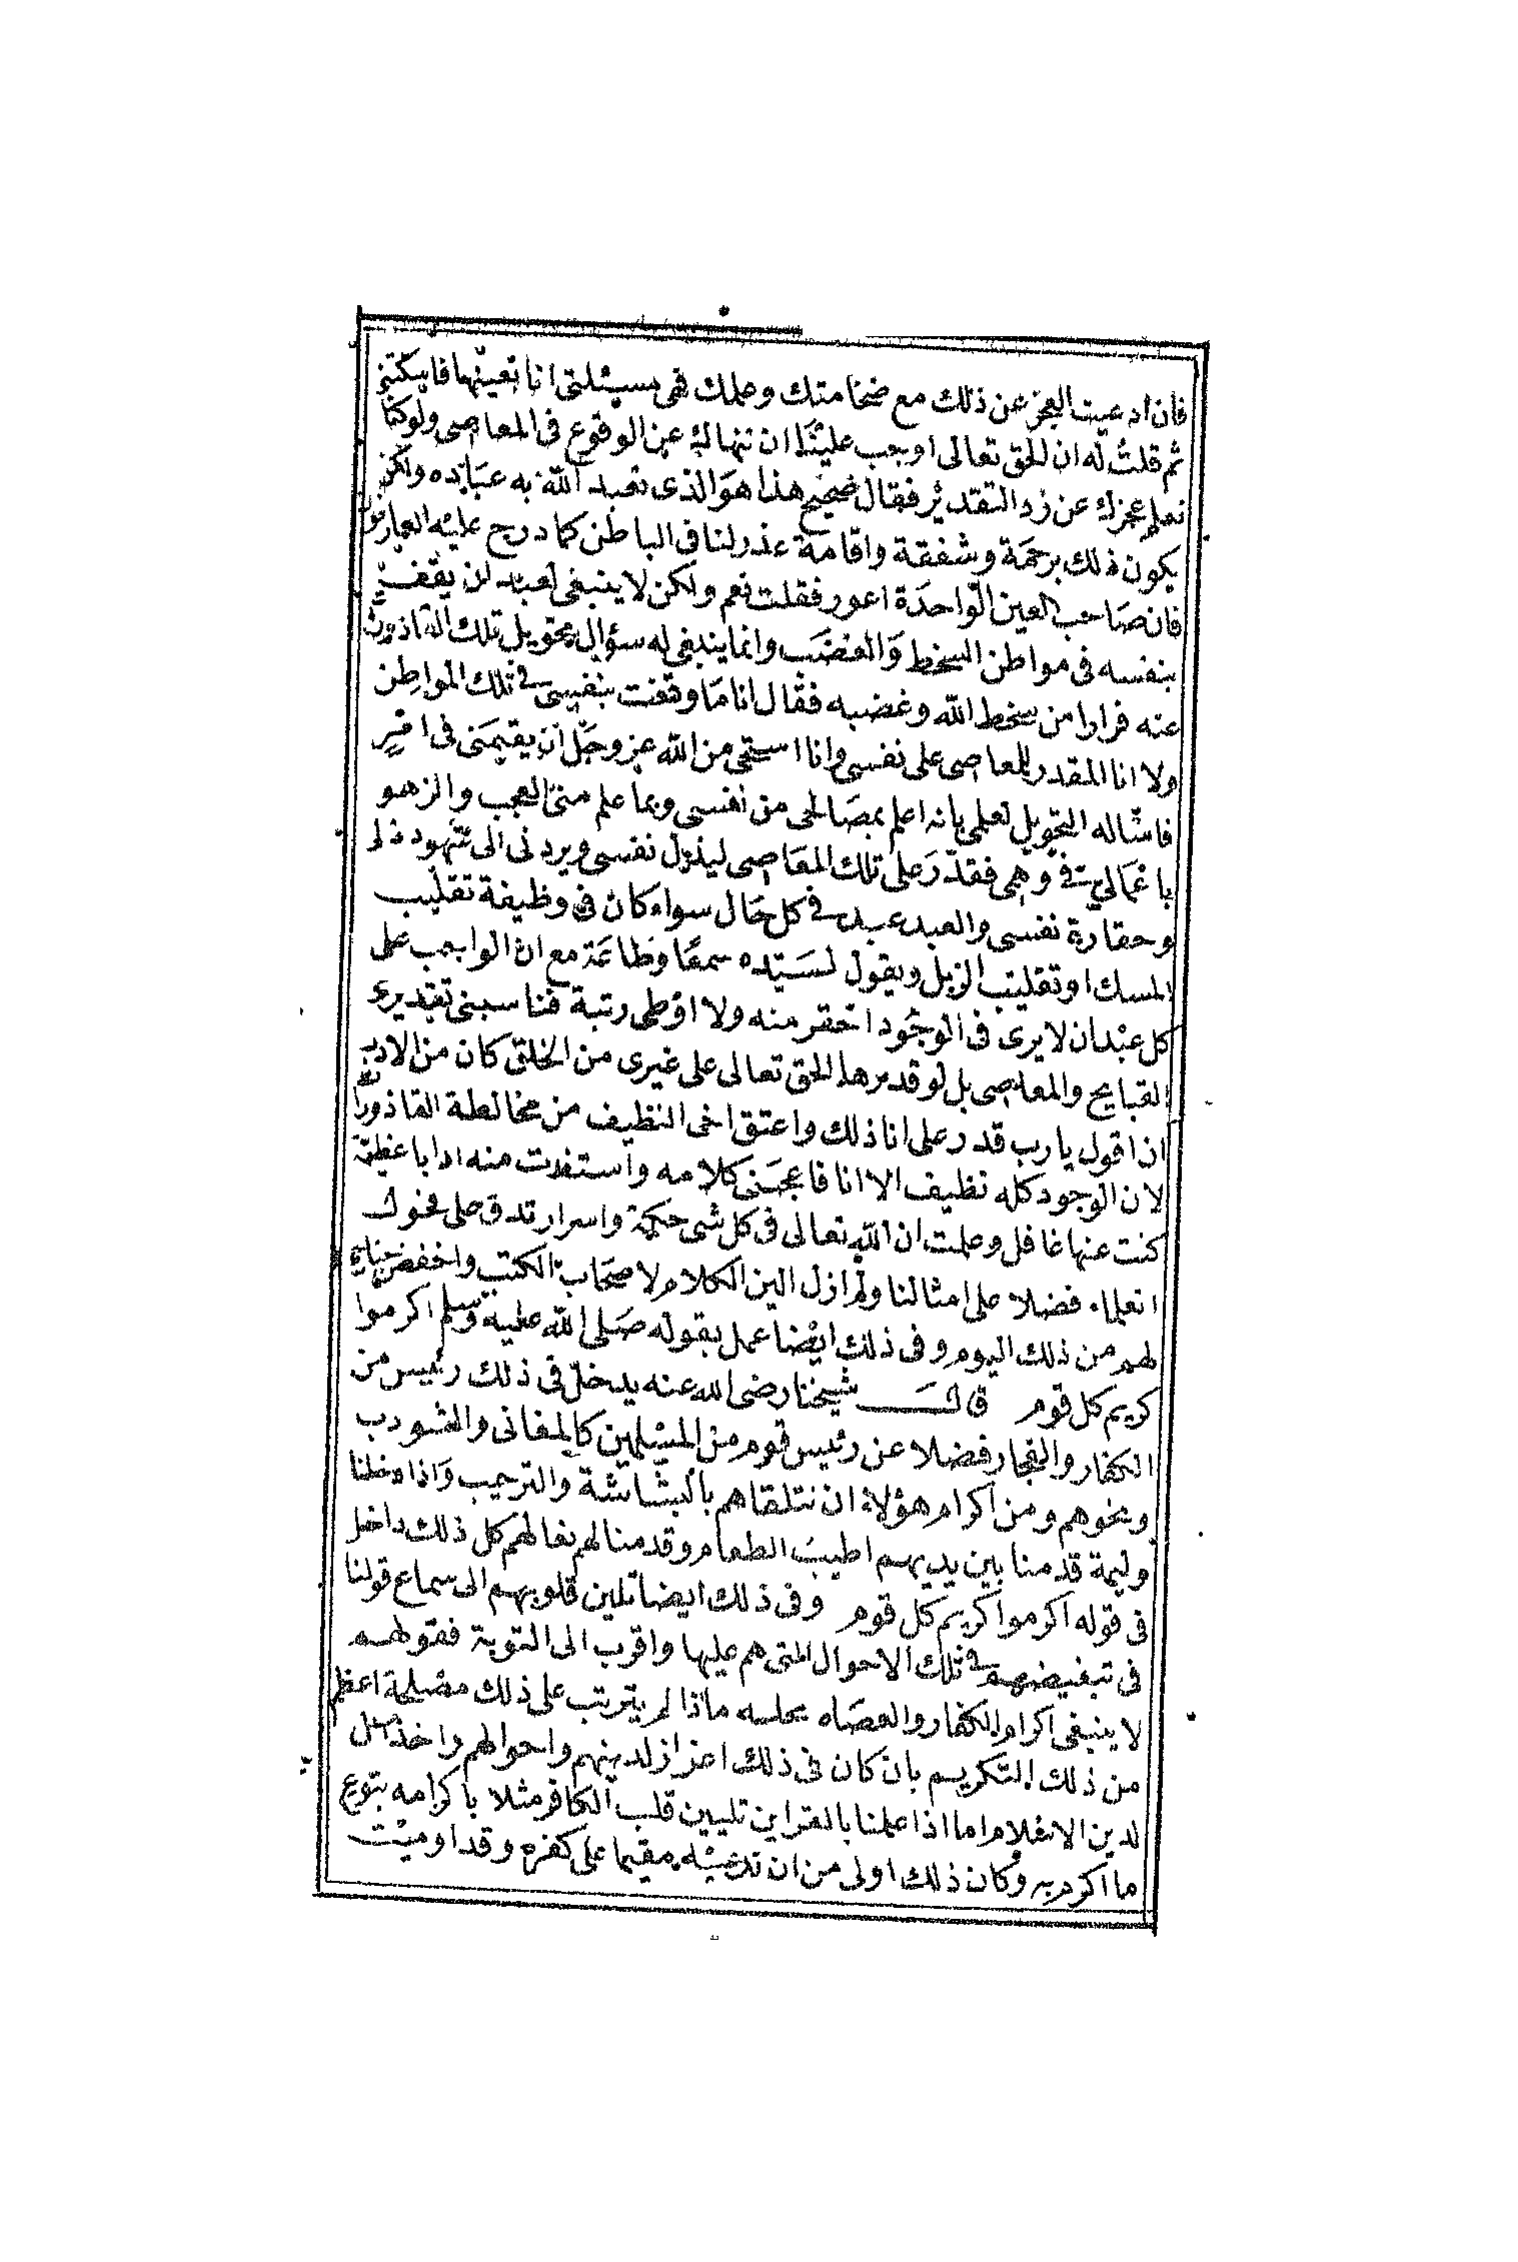 فان ادعيت العجز عن ذلك مع ضخامتك وعلمك فهى مسئلتى انا بعينها فابكتنى
ثم قلت له ان الحق تعالى اوجب علينا ان ننهاك عن الوقوع فى المعاصى ولو كنا
نعلم عجزك عن رد التقدير فقال صحيح هذا هو الذى تعبد الله به عباده ولكن
يكون ذلك برحمة وشفقة واقامة عذر لنا فى الباطن كما درج عليه العارفون
فان صاحب العين الواحدة اعور فقلت نعم ولكن لا ينبغى لعبد ان يقف
بنفسه فى مواطن السخط والغضب وانما ينبغى له سؤال تحويل تلك القاذورات
عنه فرارا من سخط الله وغضبه فقال انا ما وقفت بنفسى فى تلك المواطن
ولا انا المقدر للمعاصى على نفسى وانا استحى من الله عز وجل ان يقيمنى فى امر
فاسأله التحويل لعلمى بانه اعلم بمصالحى من نفسى وبما علم منى العجب والزهو
باعمالى فى وهمى فقدر على تلك المعاصى ليذل نفسى ويردنى الى شهود ذل
وحقارة نفسى والعبد عبد فى كل حال سواء كان فى وظيفة تقليب
المسك او تقليب الزبل ويقول لسيده سمعا وطاعة مع ان الواجب على
كل عبد ان لا يرى فى الوجود احقر منه ولا اوطى رتبة فناسبنى تقدير
القبايح والمعاصى بل لو قدرها الحق تعالى على غيرى من الخلق كان من الادب
ان اقول يا رب قدر على انا ذلك واعتق اخى النظيف من مخالطة القاذورات
لان الوجود كله نظيف الا انا فاعجبنى كلامه واستفدت منه ادابا عظيمة
كنت عنها غافل وعلمت ان الله تعالى فى كل شى حكمة واسرار تدق على فحول
العلماء فضلا على امثالنا ولم ازل الين الكلام لاصحاب الكتب واخفض جناحى
لهم من ذلك اليوم وفى ذلك ايضا عمل بقوله صلى الله عليه وسلم اكرموا
كريم كل قوم قال شيخنا رضى الله عنه يدخل فى ذلك رئيس من
الكفار والفجار فضلا عن رئيس قوم من المسلمين كالمغانى والشودب
ونحوهم ومن اكرام هؤلاء ان نتلقاهم بالبشاشة والترحيب واذا دخلنا
وليمة قدمنا بين يديهم اطيب الطعام وقدمنا لهم نعالهم كل ذلك داخل
فى قوله اكرموا كريم كل قوم وفى ذلك ايضا تليين قلوبهم الى سماع قولنا
فى تبغيضهم فى تلك الاحوال التى هم عليها واقرب الى التوبة فقولهم
لا ينبغى اكرام الكفار والعصاه محله ماذا لم يترتب على ذلك مصلحة اعظم
من ذلك التكريم بان كان فى ذلك اعزاز لدينهم واحوالهم واخذال
لدين الاسلام اما اذا علمنا بالقراين تليين قلب الكافر مثلا باكرامه بنوع
ما اكرم به وكان ذلك اولى من ان ندعه مقيما على كفره وقد اوميت